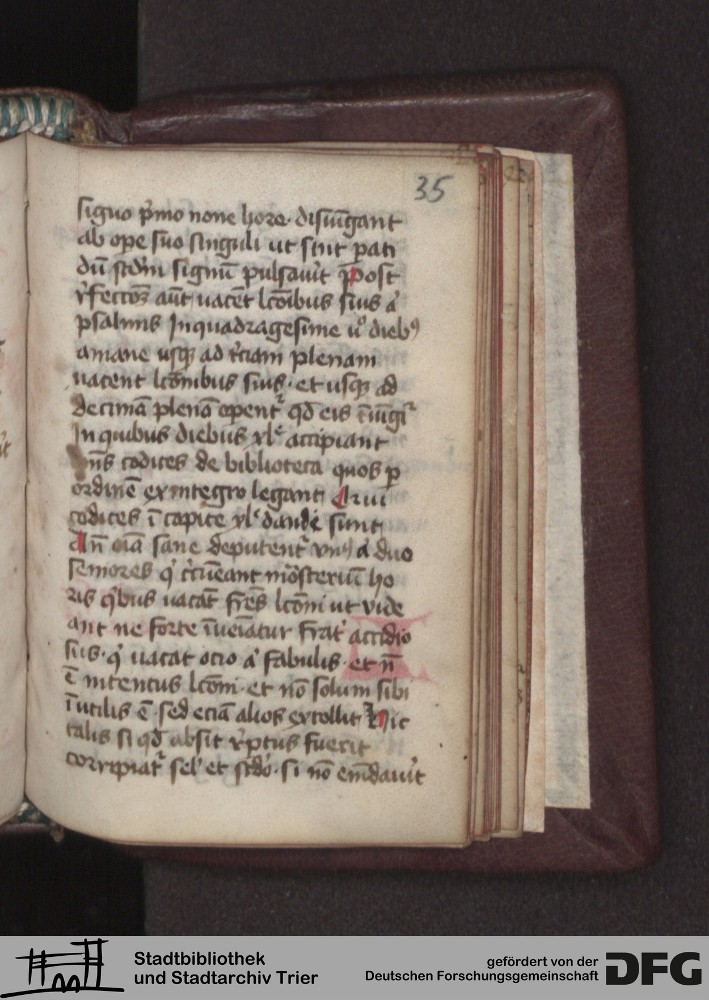 35
signo p̄mo none hore· disiūgant
ab ope suo singuli ut sint pati
dū scd̄m signū pulsau̾it p̄ost
r̾fectōȝ aūt uacēt lcōibus suis ā
psalmis In quadragesime ů diebꝰ
a mane usqȝ ad t̾ciam plenam
uacent lcōnibus suis· et usqȝ ad
decimā plenā opent᷑ qd̄ eis īiūgi᷑
In quibus diebus xl᷑ accipiant
om̄s codices de biblioteca quos p̄
ordinē ex integro legant Qui
codices ī capite xl᷑ dandi sunt
An̄ oīa sane deputent᷑ vnꝰ ā duo
seniores q̇ c̾cūeant mōsterīū ho
ris q̇bus uacāt fr̄es lcōni ut vide
ant ne forte īueīatur frat᷑ accidio
sus· q̇ uacat ocio ā fabulis· et n̄
ē intentus lcōni· et nō solum sibi
īutilis ē· sed eciā alios extollit Hic
talis si qd̄ absit r̾ptus fuerit
corripiat᷑ sel᷑ et scdo· si nō emēdau̾it
Stadtbibliothek
und Stadtarchiv Trier
gefördert von der
Deutschen Forschungsgemeinschaft DFG